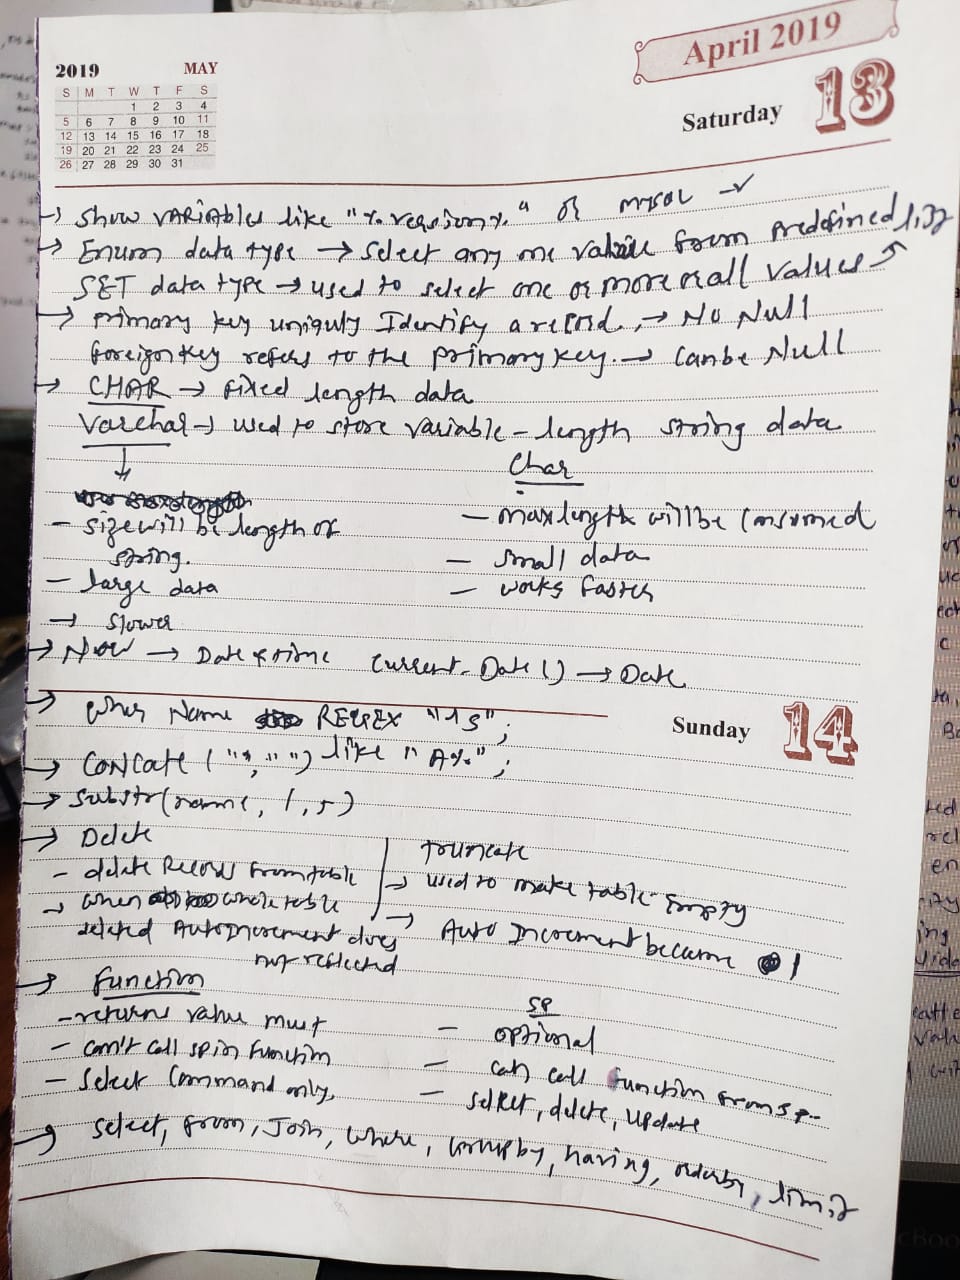 April 2019
2019 MAY
S M T W T F S
1 2 3 4
5 6 7 8 9 10 11
12 13 14 15 16 17 18
19 20 21 22 23 24 25
26 27 28 29 30 31
Saturday 13
→ show VARIABLES like "%version%" of mysql ✓
→ Enum data type → select any one value form predefined list
SET data type → used to select one or more or all values
→ primary key uniquly Identify a record. → No Null
foreign key refers to the primary key. → Can be Null
→ CHAR → fixed length data
Varchar → used to store variable - length string data
Char
- size will be length of
string.
- max length will be Consumed
- small data
- large data
- works faster
→ slower
→ Now → Date & time Current_Date () → Date
Sunday 14
→ Name REGEX ;
→ CONCATE ( "", "" ) like "A%" ;
→ substr(name, 1, 5)
→ Delete
Truncate
- delete Records from table
→ used to make table Empty
→ when whole table
deleted AutoIncrement does
not reflected
→ Auto Increment became 1
→ Function
SP
- returns value must
- optional
- can't call sp in function
- can call function from sp-
- Select Command only,
- select, delete, update
→ select, from, Join, where, Groupby, having, orderby, limit